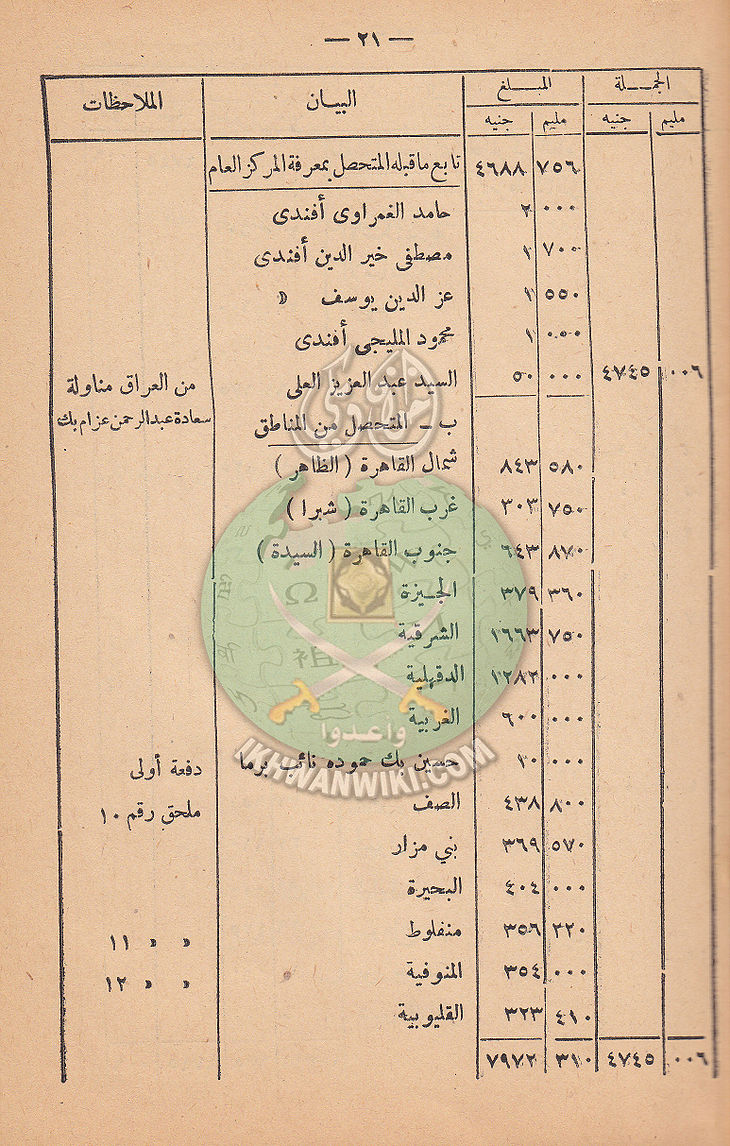 — ٢١ —
الجملة المبلغ البيان الملاحظات
مليم جنيه مليم جنيه
٧٥٦ ٤٦٨٨ تابع ما قبله المتحصل بمعرفة المركز العام
٠٠٠ ٢ حامد الغمراوى أفندى
٧٠٠ ١ مصطفى خير الدين أفندى
٥٥٠ ١ عز الدين يوسف »
٠٠٠ ١ محمود المليجى أفندى
٠٠٦ ٤٧٤٥ ٠٠٠ ٥٠ السيد عبد العزيز العلى من العراق مناولة
ب — المتحصل من المناطق سعادة عبد الرحمن عزام بك
٥٨٠ ٨٤٣ شمال القاهرة ( الظاهر )
٧٥٠ ٣٠٣ غرب القاهرة ( شبرا )
٨٧٠ ٦٤٣ جنوب القاهرة ( السيدة )
٣٦٠ ٣٧٩ الجيزة
٧٥٠ ١٦٦٣ الشرقية
٠٠٠ ١٢٨٢ الدقهلية
٠٠٠ ٦٠٠ الغربية
٠٠٠ ١٠ حسين بك حموده نائب برما دفعة أولى
٨٠٠ ٤٣٨ الصف ملحق رقم ١٠
٥٧٠ ٣٦٩ بني مزار
٠٠٠ ٤٠٤ البحيرة
٢٢٠ ٣٥٦ منفلوط » » ١١
٠٠٠ ٣٥٤ المنوفية » » ١٢
٤١٠ ٣٢٣ القليوبية
٠٠٦ ٤٧٤٥ ٣١٠ ٧٩٧٢
وأعدوا
IKHWANWIKI.COM